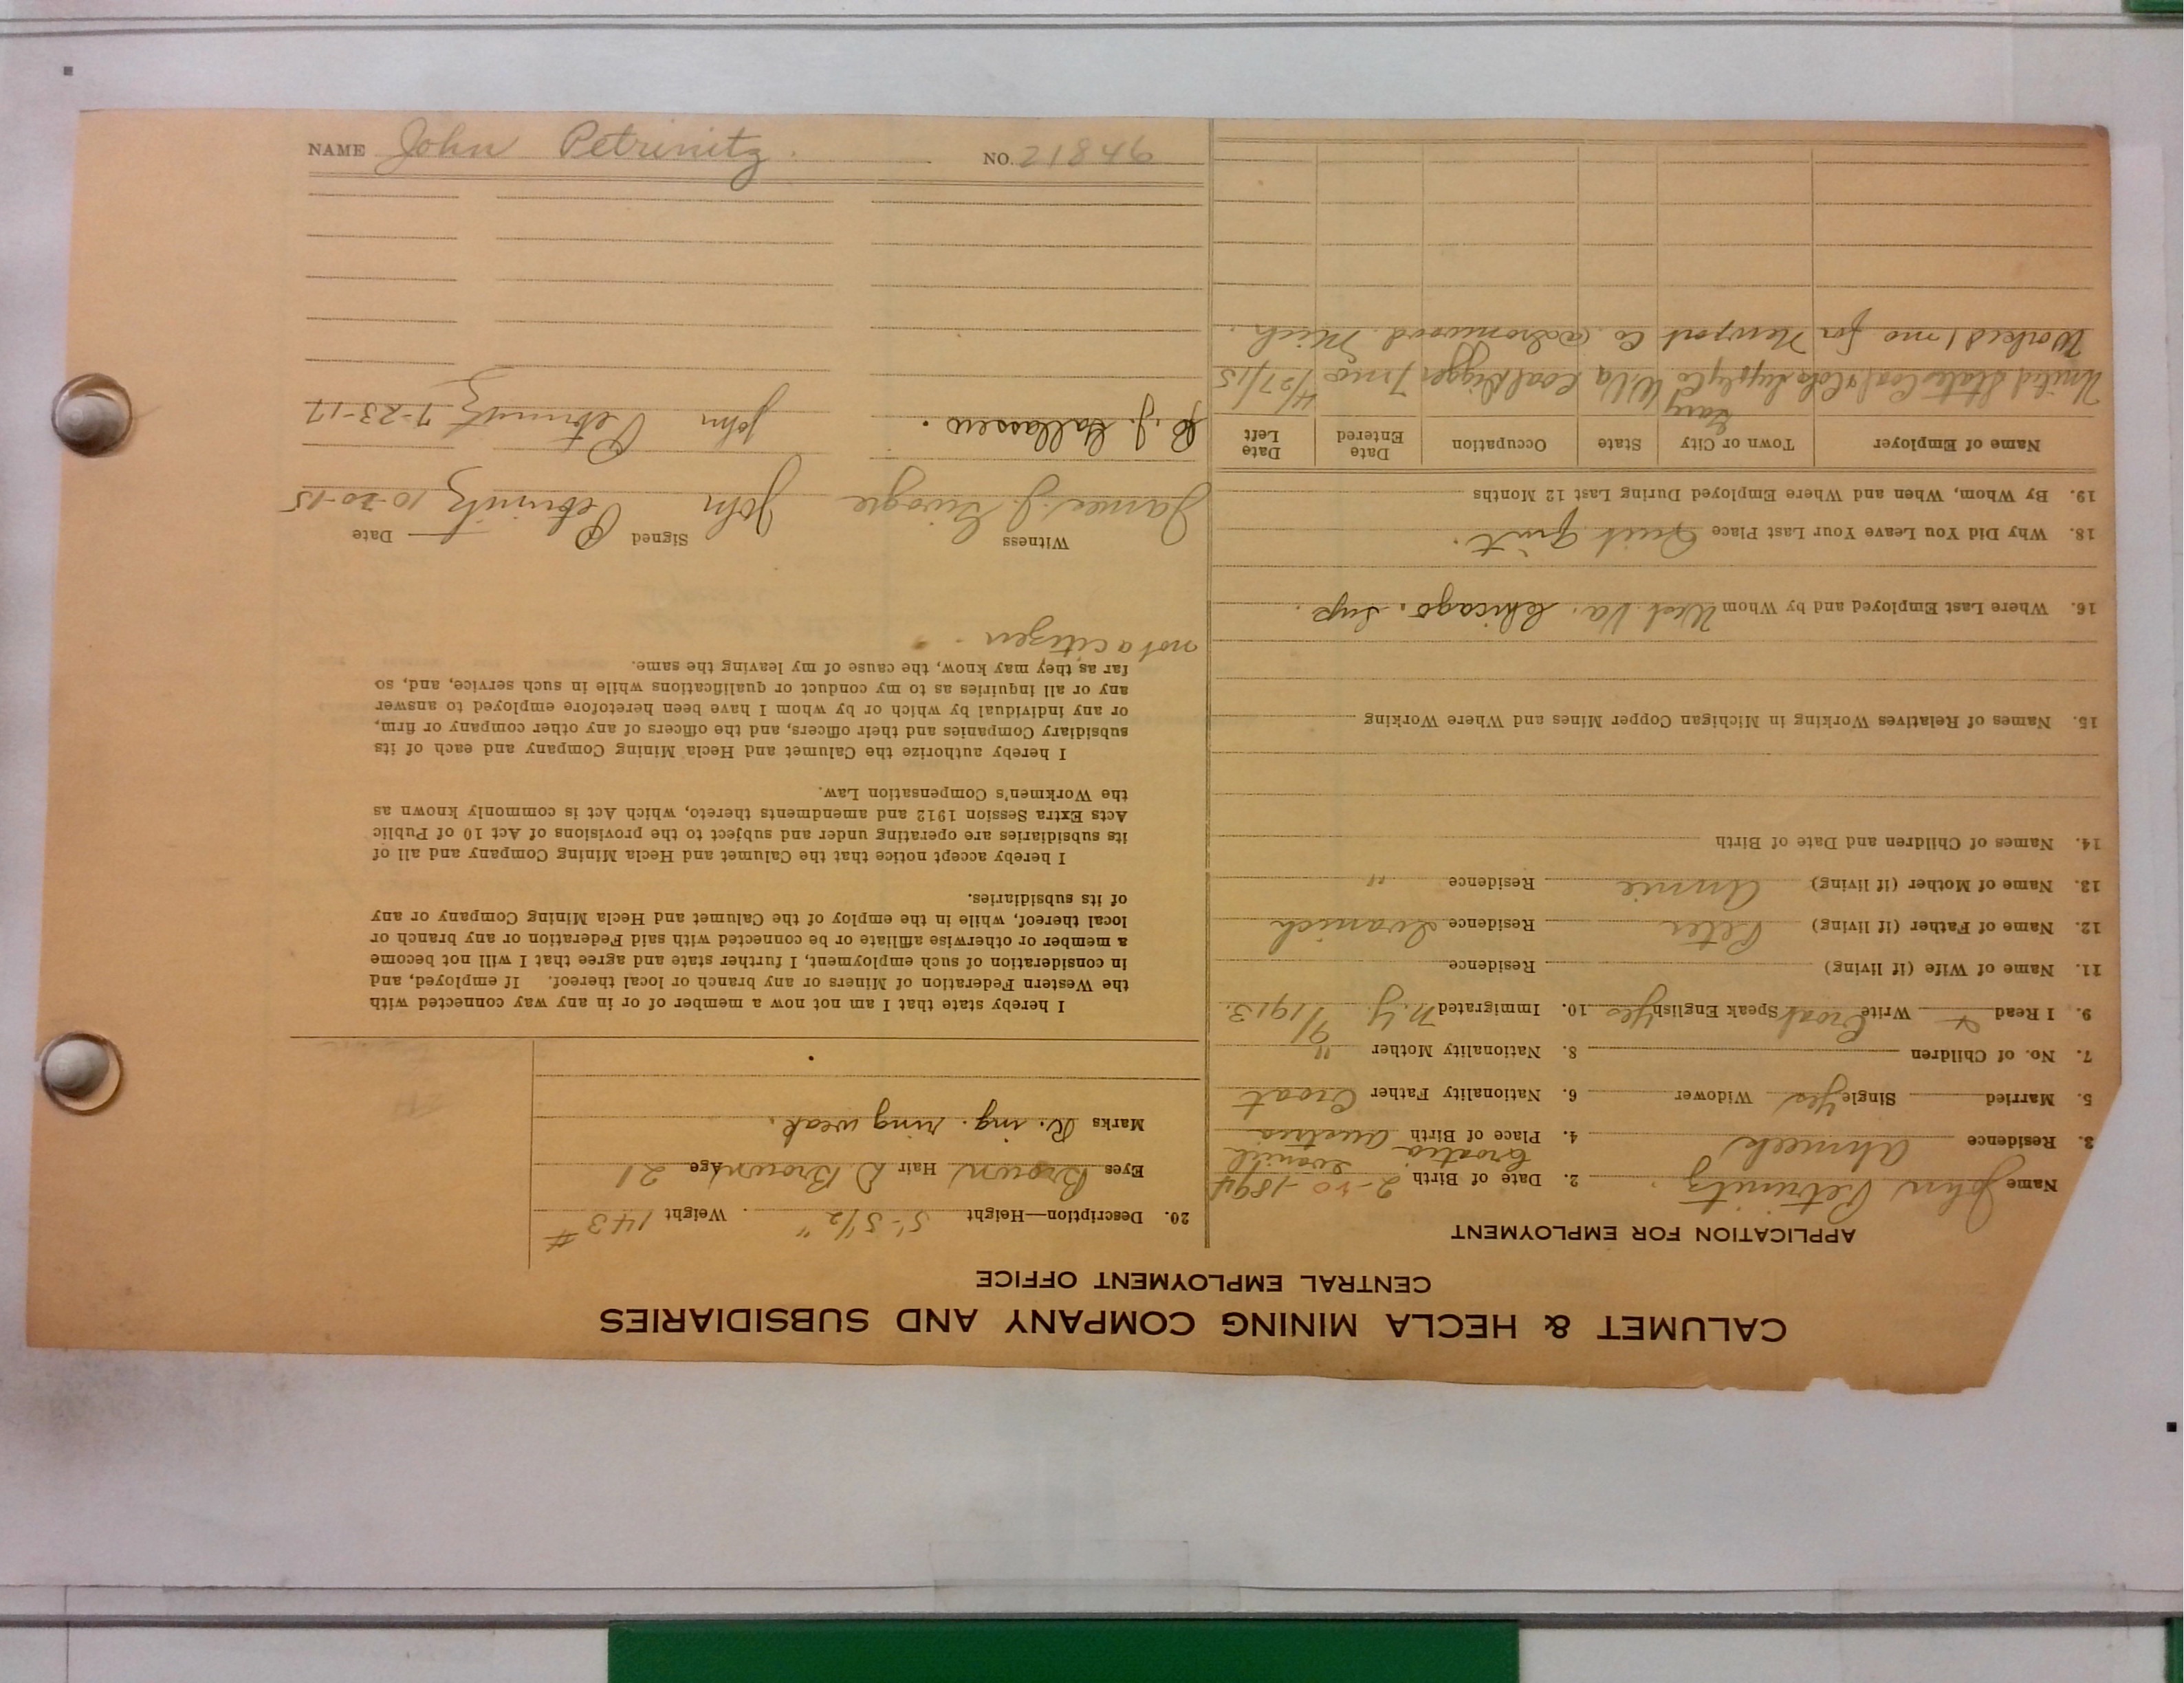 CALUMET & HECLA MINING COMPANY AND SUBSIDIARIES
CENTRAL EMPLOYMENT OFFICE
APPLICATION FOR EMPLOYMENT
Name John Petrinitz. 2. Date of Birth 2-20-1894
Croatia
3. Residence Ahmeek 4. Place of Birth Austria
5. Married Single Yes Widower 6. Nationality Father Croat
7. No. of Children 8. Nationality Mother "
9. I Read & Write Croat Speak English Yes 10. Immigrated N.Y. 9/1913.
11. Name of Wife (if living) Residence
12. Name of Father (if living) Peter Residence Ivanich
13. Name of Mother (if living) Annie Residence "
14. Names of Children and Date of Birth
15. Names of Relatives Working in Michigan Copper Mines and Where Working
16. Where Last Employed and by Whom West Va. Chicago. Sup.
18. Why Did You Leave Your Last Place Quit
19. By Whom, When and Where Employed During Last 12 Months
Name of Employer Town or City State Occupation Date Entered Date Left
United States Coal & Coke Supply Co Gary W Va Coal Digger 7 mo 4/27/15
Worked 1 mo for Newport Co @ Ironwood Mich.
20. Description—Height 5'-5 1/2" Weight 143 #
Eyes Brown Hair D. Brown Age 21
Marks R. ing. ring weak.
I hereby state that I am not now a member of or in any way connected with
the Western Federation of Miners or any branch or local thereof. If employed, and
in consideration of such employment, I further state and agree that I will not become
a member or otherwise affiliate or be connected with said Federation or any branch or
local thereof, while in the employ of the Calumet and Hecla Mining Company or any
of its subsidiaries.
I hereby accept notice that the Calumet and Hecla Mining Company and all of
its subsidiaries are operating under and subject to the provisions of Act 10 of Public
Acts Extra Session 1912 and amendments thereto, which Act is commonly known as
the Workmen's Compensation Law.
I hereby authorize the Calumet and Hecla Mining Company and each of its
subsidiary Companies and their officers, and the officers of any other company or firm,
or any individual by which or by whom I have been heretofore employed to answer
any or all inquiries as to my conduct or qualifications while in such service, and, so
far as they may know, the cause of my leaving the same.
not a citizen.
Witness Signed Date
James J. John Petrinitz 10-20-15
John Petrinitz 7-23-17
NAME John Petrinitz. NO. 21846